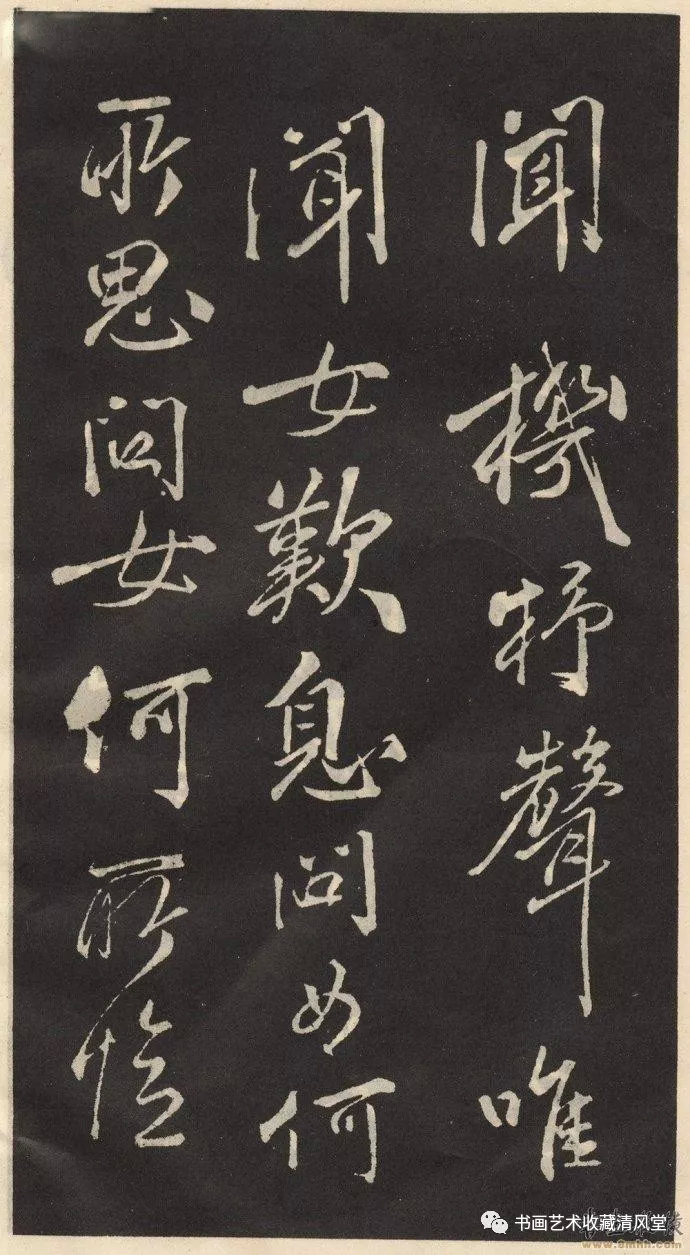 闻機杼聲唯
聞女歎息問女何
所思問女何所憶
书画艺术收藏清风堂